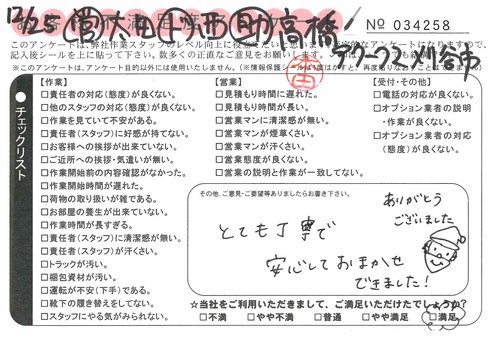 12/25 営太田 下西 助高橋
№ 034258
このアンケートは、弊社作業スタッフのレベル向上に役立
記入後シールを上に貼って下さい。数多くの正直なご意見をお
※このアンケートは、アンケート目的以外には使用いたしません。
デワーフス刈谷市
チェックリスト
【作業】
□責任者の対応(態度)が良くない。
□他のスタッフの対応(態度)が良くない。
□作業を見ていて不安がある。
□責任者(スタッフ)に好感が持てない。
□お客様への挨拶が出来ていない。
□ご近所への挨拶・気遣いが無い。
□作業開始前の内容確認がなかった。
□作業開始時間が遅れた。
□荷物の取り扱いが雑である。
□お部屋の養生が出来ていない。
□作業時間が長すぎる。
□責任者(スタッフ)に清潔感が無い。
□責任者(スタッフ)が汗くさい。
□トラックが汚い。
□梱包資材が汚い。
□運転が不安(下手)である。
□靴下の履き替えをしてない。
□スタッフにやる気がみられない。
【営業】
□見積もり時間に遅れた。
□見積もり時間が長い。
□営業マンに清潔感が無い。
□営業マンが煙草くさい。
□営業マンが汗くさい。
□営業態度が良くない。
□営業の説明と作業が一致してない。
【受付・その他】
□電話の対応が良くない。
□オプション業者の説明
・作業が良くない。
□オプション業者の対応
(態度)が良くない。
その他、ご意見・ご要望等ありましたらお書き下さい。
ありがとう
ございました
とても丁寧で
安心しておまかせ
できました!
☆当社をご利用いただきまして、ご満足いただけたでしょうか?
□不満 □やや不満 □普通 □やや満足 □満足